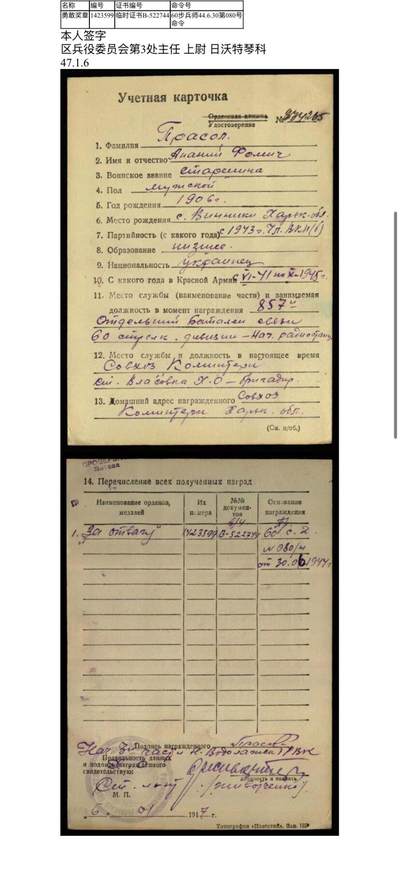 名称 编号 证书编号 命令号
勇敢奖章 1423599 临时证书B-522744 60步兵师44.6.30第080号命令
本人签字
区兵役委员会第3处主任 上尉 日沃特琴科
47.1.6
Учетная карточка
Орденская книжка №
Удостоверение
1. Фамилия Прасол
2. Имя и отчество Ананий Фомич
3. Воинское звание старшина
4. Пол мужской
5. Год рождения 1906 г.
6. Место рождения с. Винники Харьк. обл.
7. Партийность (с какого года) с 1943 г. Чл. ВКП(б)
8. Образование низшее
9. Национальность украинец
10. С какого года в Красной Армии с VI-41 по X-1945 г.
11. Место службы (наименование части) и занимаемая
должность в момент награждения 857й
Отдельный баталион связи
60 стрелк. дивизии – Нач. радиостанц
12. Место службы и должность в настоящее время
Совхоз Коминтерн
ст. Власовка Х.О – бригадир
13. Домашний адрес награжденного Совхоз
Коминтерн Харьк. обл.
(См. н/об.)
14. Перечисление всех полученных наград
Наименование орденов, медалей
Их номера
№№ документов
Основание награждения
1. "За отвагу" 1423599 В-522744 60 с.д.
№ 080/н
от 30.06.1944 г
Подпись награжденного
Нач. 3 части Н. Водолажск РВК
Правильность данных
и подпись награжденного
свидетельствую:
М. П.
6. 01 1947 г.
Типография